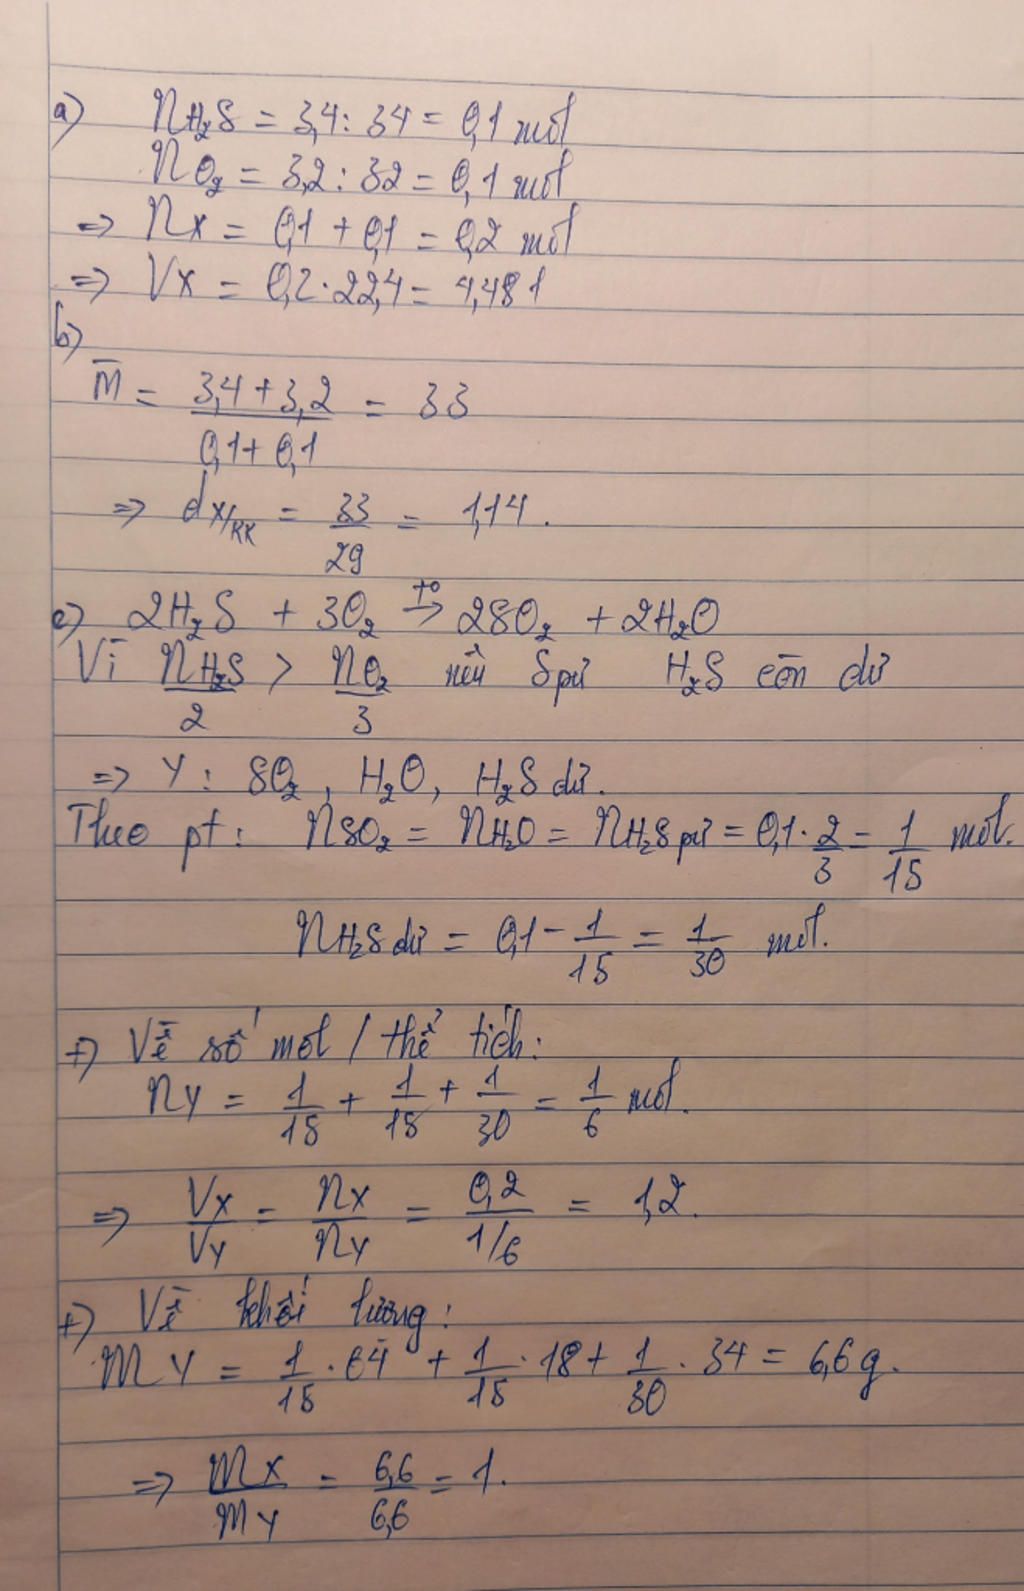 a) nH₂S = 3,4 : 34 = 0,1 mol
nO₂ = 3,2 : 32 = 0,1 mol
=> nX = 0,1 + 0,1 = 0,2 mol
=> VX = 0,2 . 22,4 = 4,48 l
b)
M̄ = (3,4 + 3,2)/(0,1 + 0,1) = 33
=> dX/KK = 33/29 = 1,14.
c) 2H₂S + 3O₂ →(t°) 2SO₂ + 2H₂O
Vì nH₂S/2 > nO₂/3 nên Spứ H₂S còn dư
=> Y : SO₂, H₂O, H₂S dư.
Theo pt: nSO₂ = nH₂O = nH₂S pứ = 0,1 . 2/3 = 1/15 mol.
nH₂S dư = 0,1 - 1/15 = 1/30 mol.
+) Về số mol / thể tích:
nY = 1/15 + 1/15 + 1/30 = 1/6 mol.
=> VX/VY = nX/nY = 0,2/1/6 = 1,2.
+) Về khối lượng:
mY = 1/15 . 64 + 1/15 . 18 + 1/30 . 34 = 6,6 g.
=> mX/mY = 6,6/6,6 = 1.